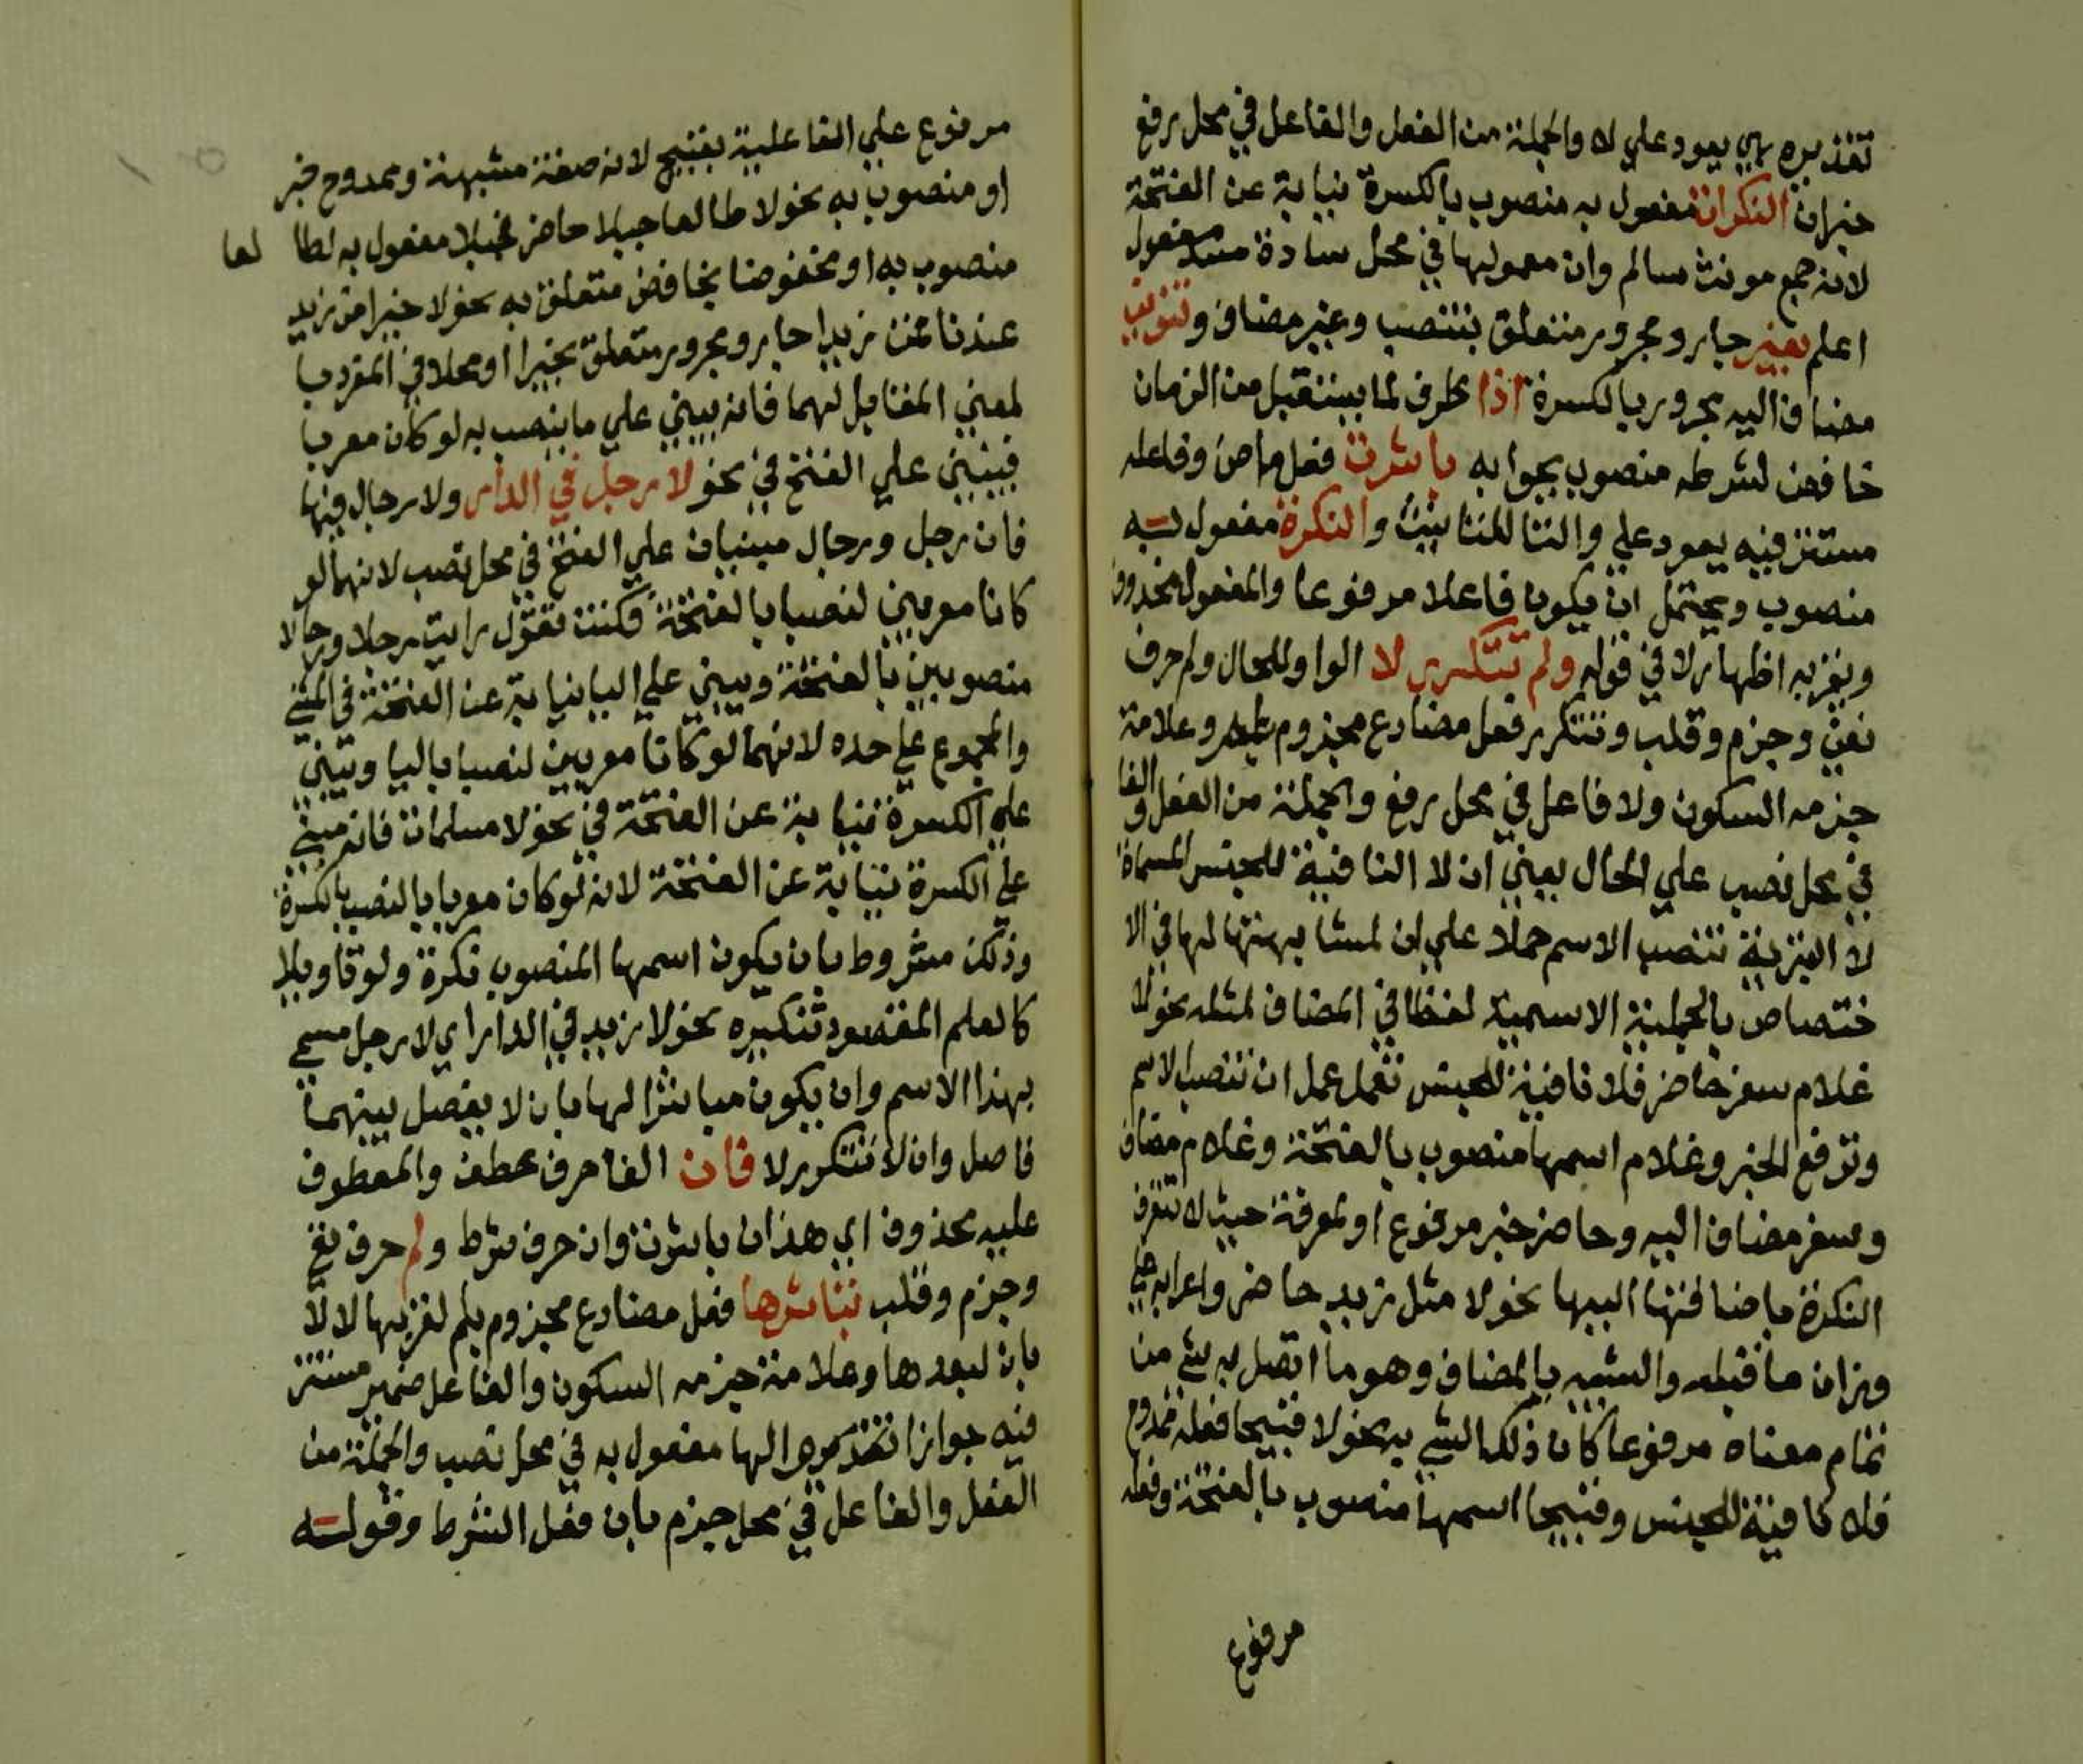 تقديره هي يعود علي لا والجملة من الفعل والفاعل في محل رفع
خبران النكرات مفعول به منصوب بالكسرة نيابة عن الفتحة
لانه جمع مونث سالم وان معموليها في محل سادة مسد مفعول
اعلم بغير جار ومجرور متعلق بتنصب وغير مضاف وتنوين
مضاف اليه مجرور بالكسرة اذا ظرف لما يستقبل من الزمان
خافض لشرطه منصوب بجوابه باشرت فعل ماض وفاعله
مستتر فيه يعود علي والتا للتانيث والنكرة مفعول به
منصوب ويحتمل ان يكون فاعلا مرفوعا والمفعول محذوف
ويغزيه اظهار لا في قوله ولم تتكرر لا الواو للحال ولم حرف
نفي وجزم وقلب وتتكرر فعل مضارع مجزوم بلم وعلامة
جزمه السكون ولا فاعل في محل رفع والجملة من الفعل والفا
في محل نصب علي الحال يعني ان لا النافية للجنس المسماة
لا التبزية تنصب الاسم حملا علي ان لمشابهتها لها في الا
ختصاص بالجملية الاسمية لفظا في المضاف لمثله نحو لا
غلام سفر حاضر فلا نافية للجنس تعمل عمل ان تنصب الاسم
وترفع الخبر وغلام اسمها منصوب بالفتحة وغلام مضاف
وسفر مضاف اليه وحاضر خبر مرفوع او لمعرفة حيث لا تتعرف
النكرة باضافتها اليها نحو لا مثل زيد حاضر واعرابه علي
وزان ما قبله والشبيه بالمضاف وهو ما اتصل به شي من
تمام معناه مرفوعا كان ذلك الشي به نحو لا قبيحا فعله ممدوح
فلا نافية للجنس وقبيحا اسمها منصوب بالفتحة وفعله
مرفوع
مرفوع علي الفاعلية بقبيح لانه صفة مشبهة وممدوح خبر
او منصوب به نحو لا طالعا جبلا حاضر فجبلا مفعول به لطا لعا
منصوب به او مخفوضا بخافض متعلق به نحو لا خيرا من زيد
عندنا فمن زيد جار ومجرور متعلق بخيرا او محلا في المفرد با
لمعني المقابل لهما فانه يبني علي ما ينصب به لو كان معربا
فيبني علي الفتح في نحو لا رجل في الدار ولا رجال فيها
فان رجل ورجال مبنيان علي الفتح في محل نصب لانهما لو
كانا معربين لنصبا بالفتحة فكنت تقول رايت رجلا ورجالا
منصوبين بالفتحة ويبني علي اليا نيابة عن الفتحة في المثني
والمجموع علي حده لانهما لو كانا معربين لنصبا باليا ويبني
علي الكسرة نيابة عن الفتحة في نحو لا مسلمات فانه مبني
علي الكسرة نيابة عن الفتحة لانه لو كان معربا بالنصب بالكسرة
وذلك مشروط بان يكون اسمها المنصوب نكرة ولو تاويلا
كالعلم المقصود تنكيره نحو لا زيد في الدار اي لا رجل مسمي
بهذا الاسم وان يكون مباشرا لها بان لا يفصل بينهما
فاصل وان لا تتكرر لا فان الفا حرف عطف والمعطوف
عليه محذوف اي هذان باشرت وان حرف شرط ولم حرف نفي
وجزم وقلب تباشرها فعل مضارع مجزوم بلم لقربها لا
بان لبعدها وعلامة جزمه السكون والفاعل ضمير مستتر
فيه جوازا تقديره هو الها مفعول به في محل نصب والجملة من
الفعل والفاعل في محل جزم بان فعل الشرط وقوله